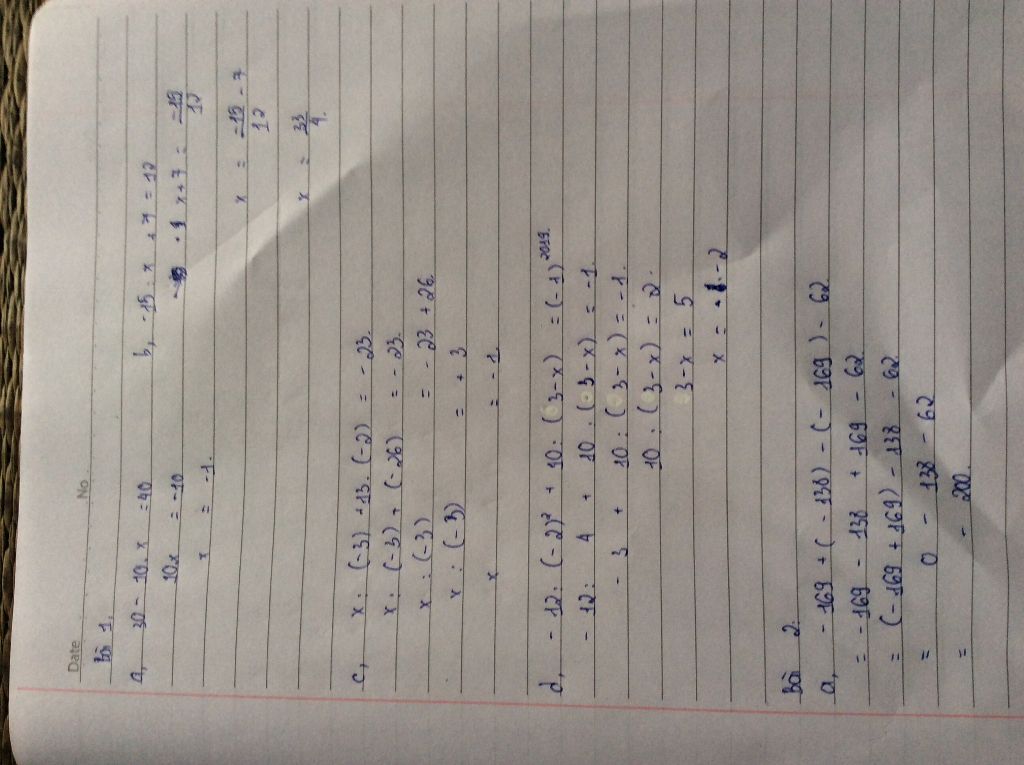 No.
Date
Bài 1.
a, 30 - 10.x = 40
10x = -10
x = -1.
b, -15 : x + 7 = 12
x + 7 = -15/12
x = -15/12 - 7
x = 33/4.
c, x : (-3) + 13.(-2) = -23.
x : (-3) + (-26) = -23.
x : (-3) = -23 + 26.
x : (-3) = + 3
x = -1.
d, - 12 : (-2)² + 10 : (3-x) = (-1)²⁰¹⁹.
- 12 : 4 + 10 : (3-x) = -1.
- 3 + 10 : (3-x) = -1.
10 : (3-x) = 2.
3-x = 5
x = -2
Bài 2.
a, - 169 + (-138) - (-169) - 62
= - 169 - 138 + 169 - 62
= (-169 + 169) - 138 - 62
= 0 - 138 - 62
= - 200.